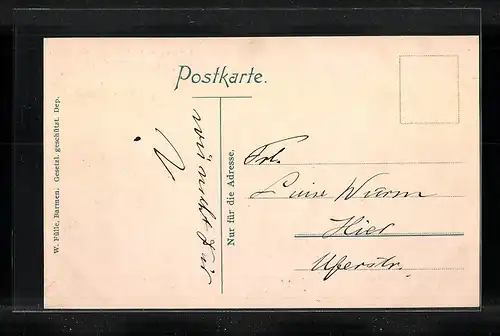 Postkarte.
W. Fülle, Barmen. Gesetzl. geschützt. Dep.
Nur für die Adresse.
Frl.
Luise Wurm
Hier
Uferstr.